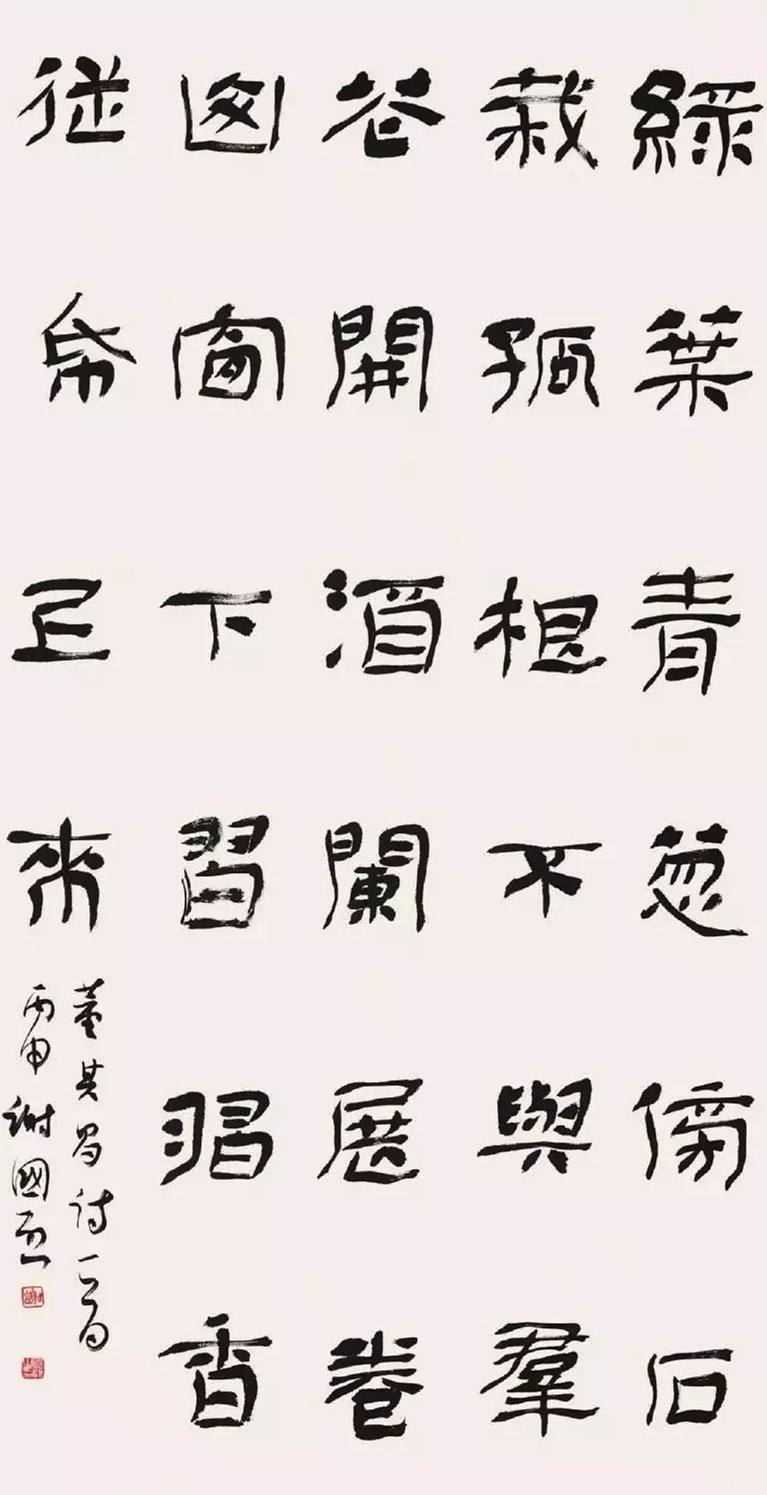 綠葉青葱傍石
栽孤根不與羣
花開酒闌展卷
窗下習習香
從帋上來
董其昌詩一首
丙申謝國